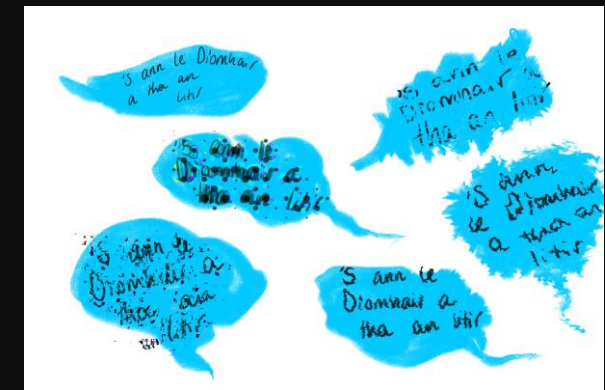 'S ann le Diomhair
a tha an
litir
's ann le
Diomhair a
tha an litir
'S ann le
Diomhair a
tha an litir
'S ann
le Diomhair
a tha an
litir
'S ann le
Diomhair a
tha an
litir
'S ann le
Diomhair a
tha an litir